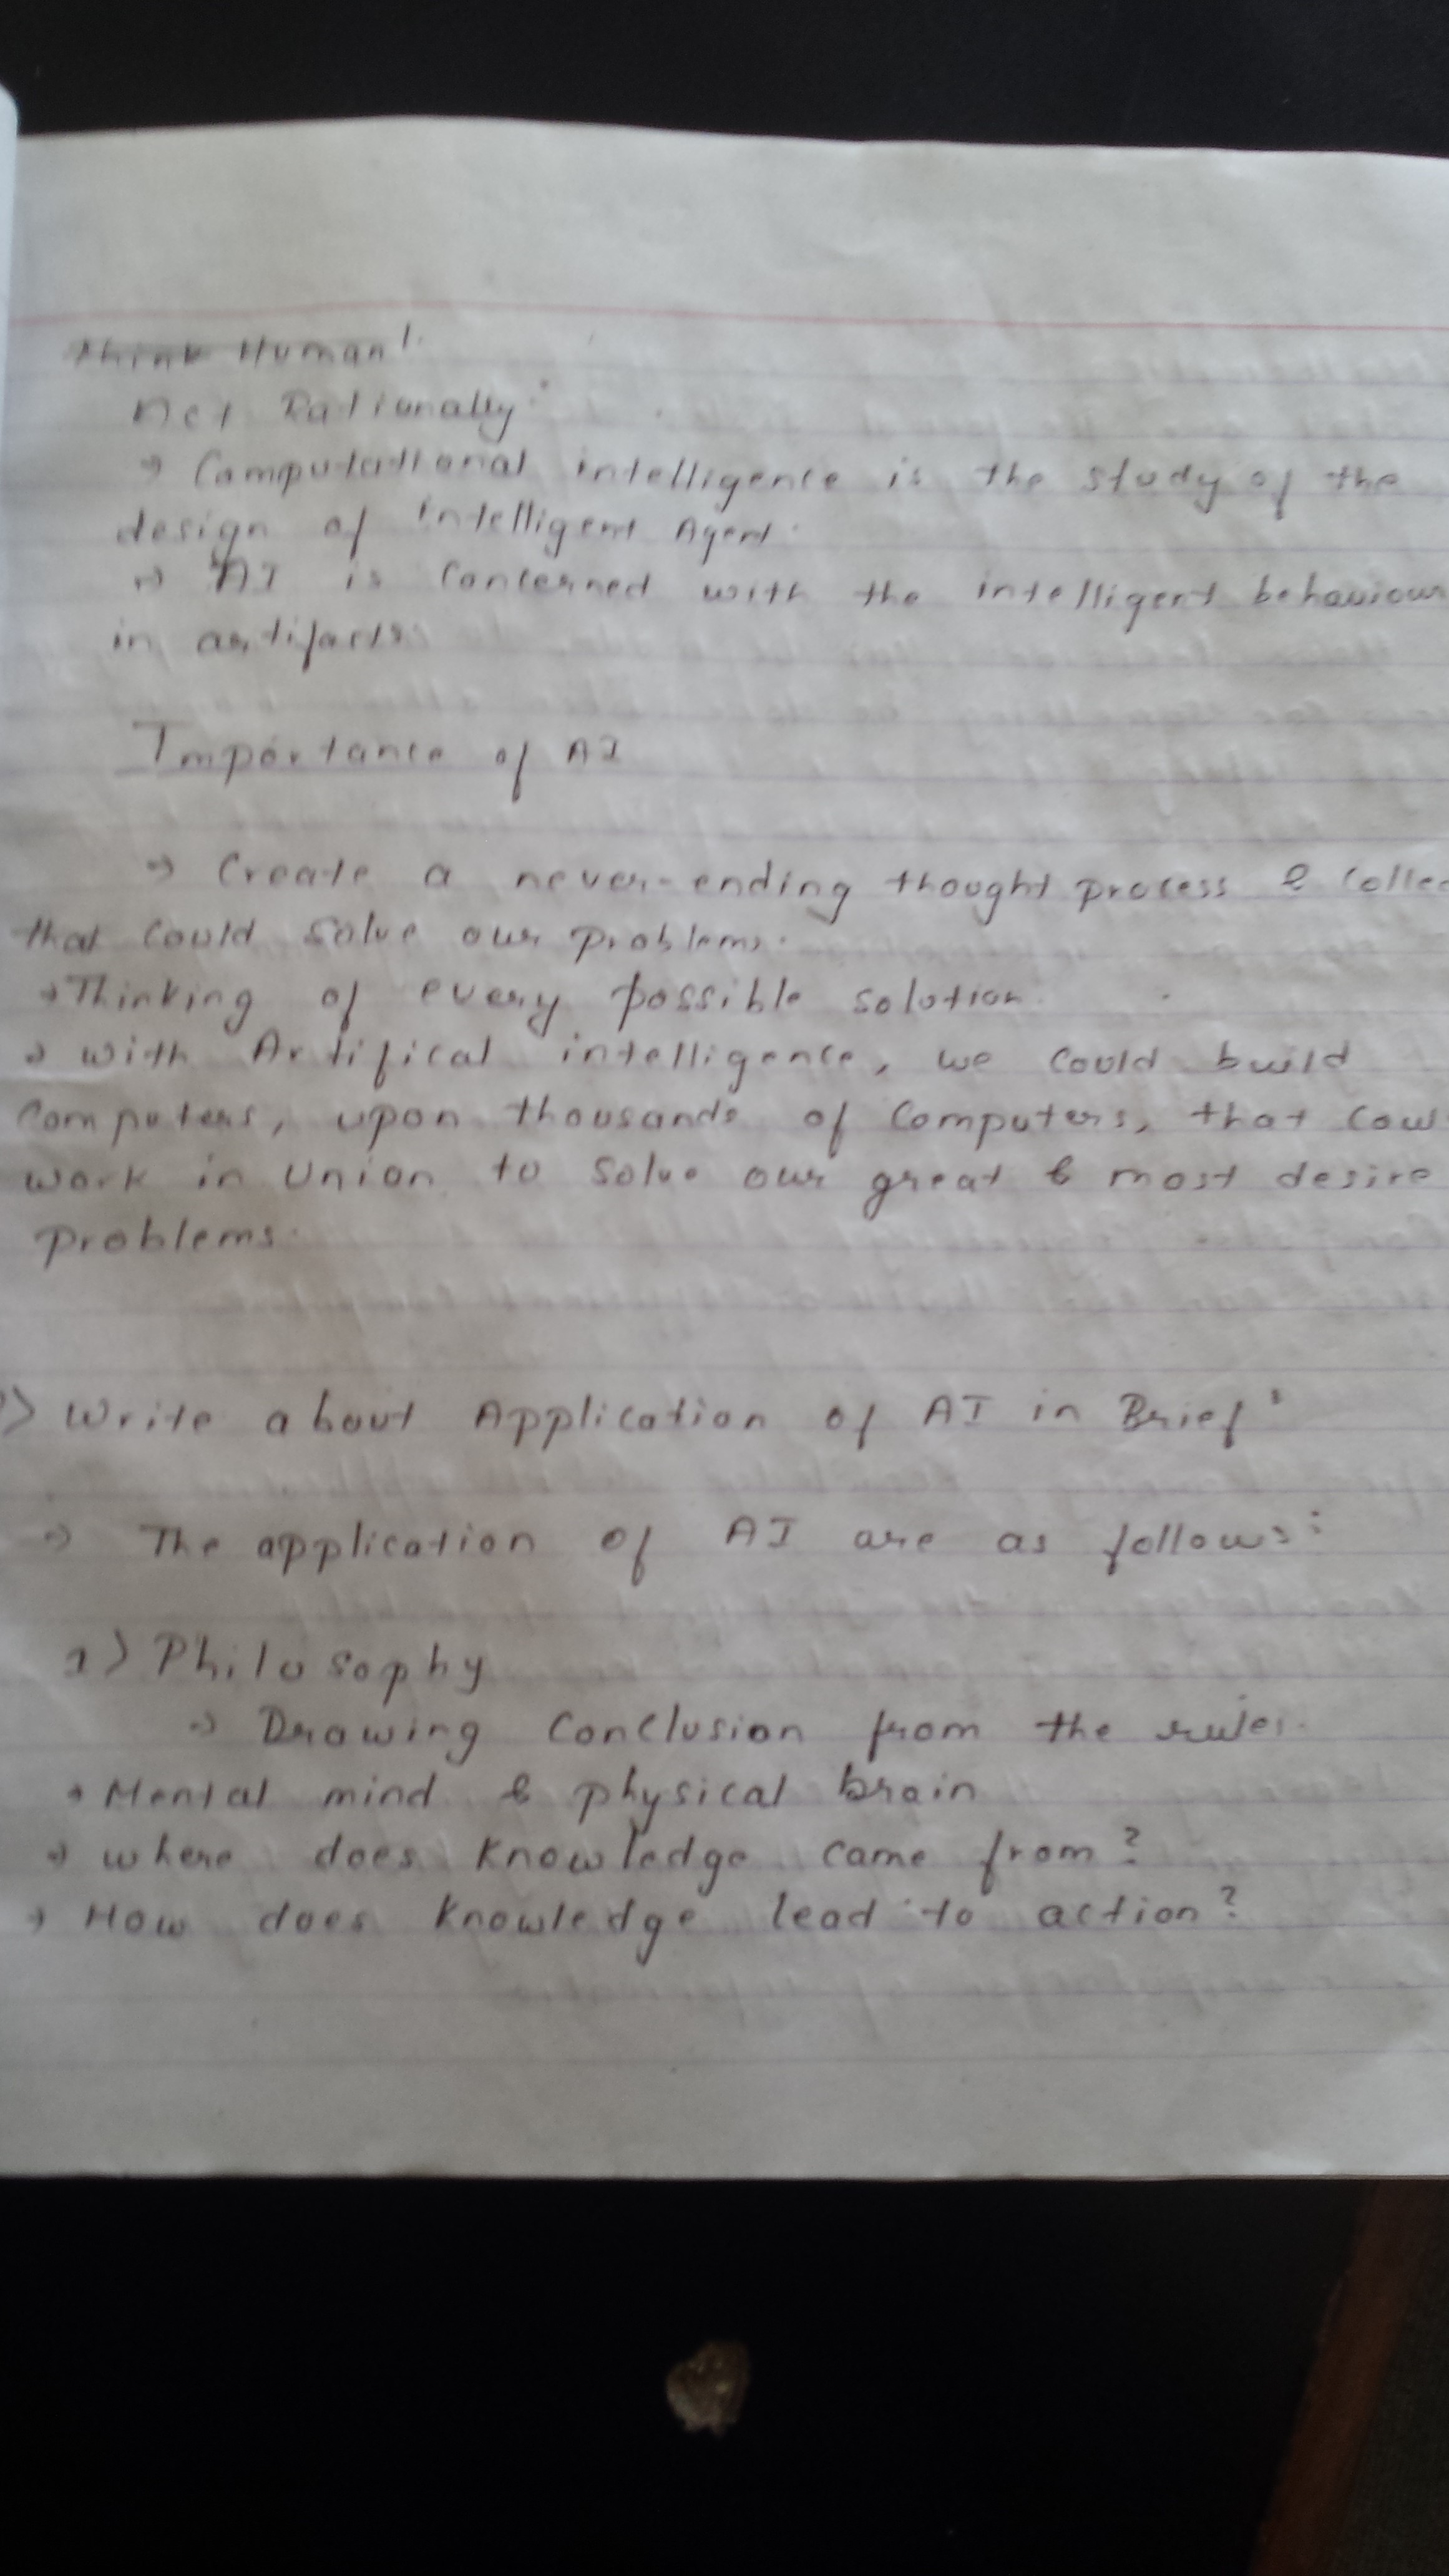 Think Human!
Act Rationally:
→ Computational intelligence is the study of the
design of Intelligent Agent.
→ AI is Concerned with the intelligent behaviour
in artifacts
Importance of AI
→ Create a never-ending thought process &
that could solve our problems.
→ Thinking of every possible solution
→ with Artifical intelligence, we could build
Computers, upon thousands of Computers, that
work in Union to solve our great & most desire
problems.
> Write about Application of AI in Brief:
→ The application of AI are as follows:
1> Philosophy
→ Drawing Conclusion from the rules.
→ Mental mind & physical brain
→ where does Knowledge came from?
→ How does Knowledge lead to action?